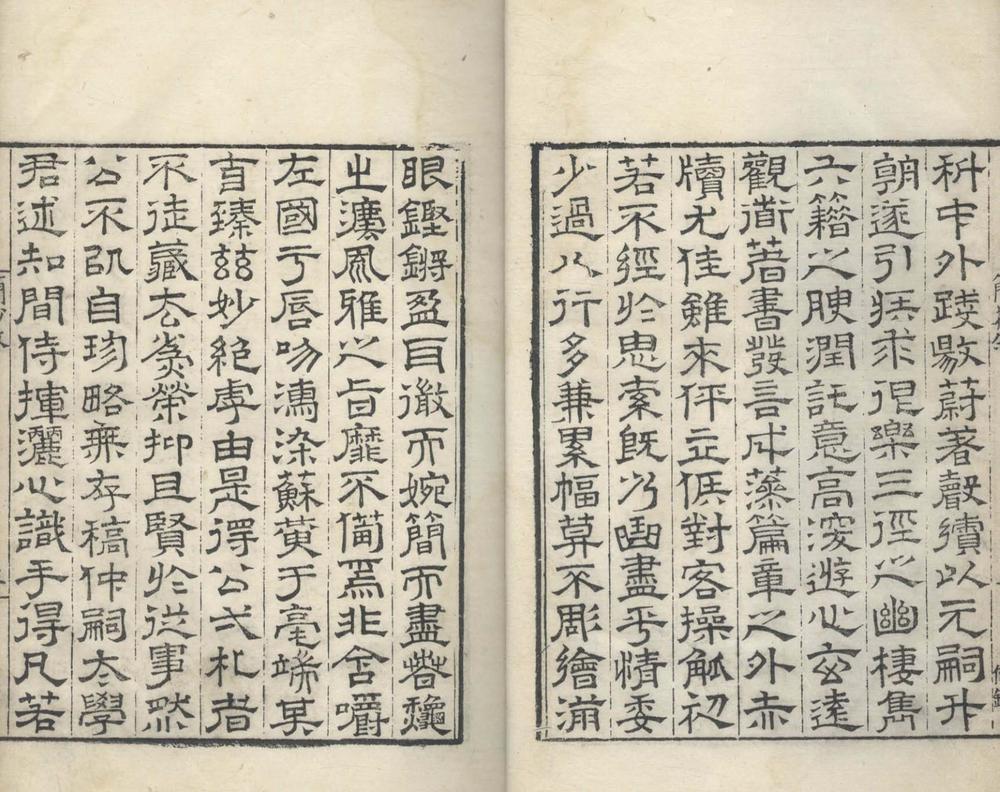 科中外踐敭蔚著聲績以元嗣升
朝遂引疾求退樂三徑之幽棲雋
六籍之腴潤託意高深遊心玄遠
觀道著書發言成藻篇章之外赤
牘尤佳雖來伻立俟對客操觚初
若不經於思索既乃曲盡乎情委
少過八行多兼累幅莫不彫繪滿
眼鏗鏘盈耳徹而婉簡而盡
之風雅之旨靡不備焉非含嚼
左國于唇吻染蘇黃于毫端
臻茲妙絕虖由是得公弌札者
不徒藏去為榮抑且賢於從事然
公不肎自珍略無存稿仲嗣太學
君述知間侍揮灑心識手得凡若